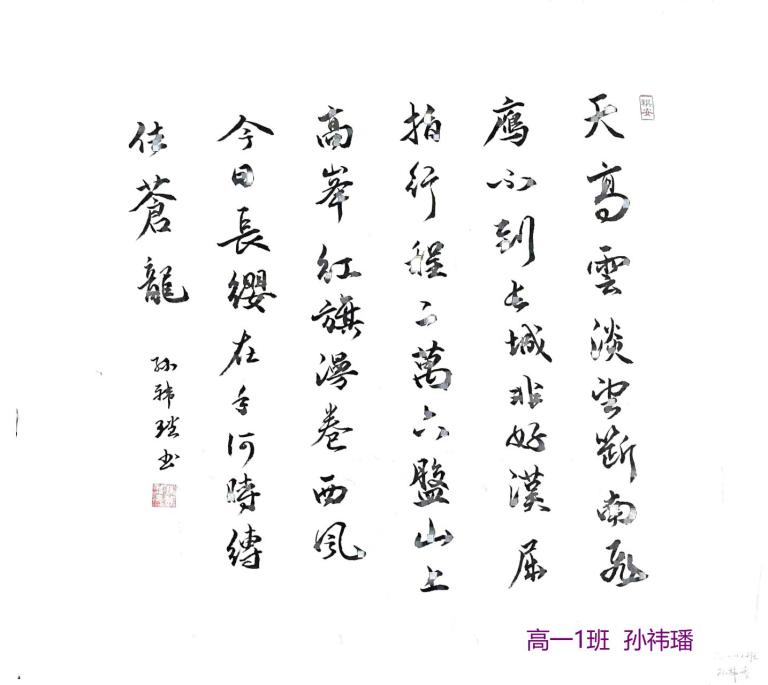 天高雲淡望斷南飛
鴈不到長城非好漢屈
指行程二萬六盤山上
高峯紅旗漫卷西風
今日長纓在手何時縛
住蒼龍
孙祎璠书
高一1班 孙祎璠